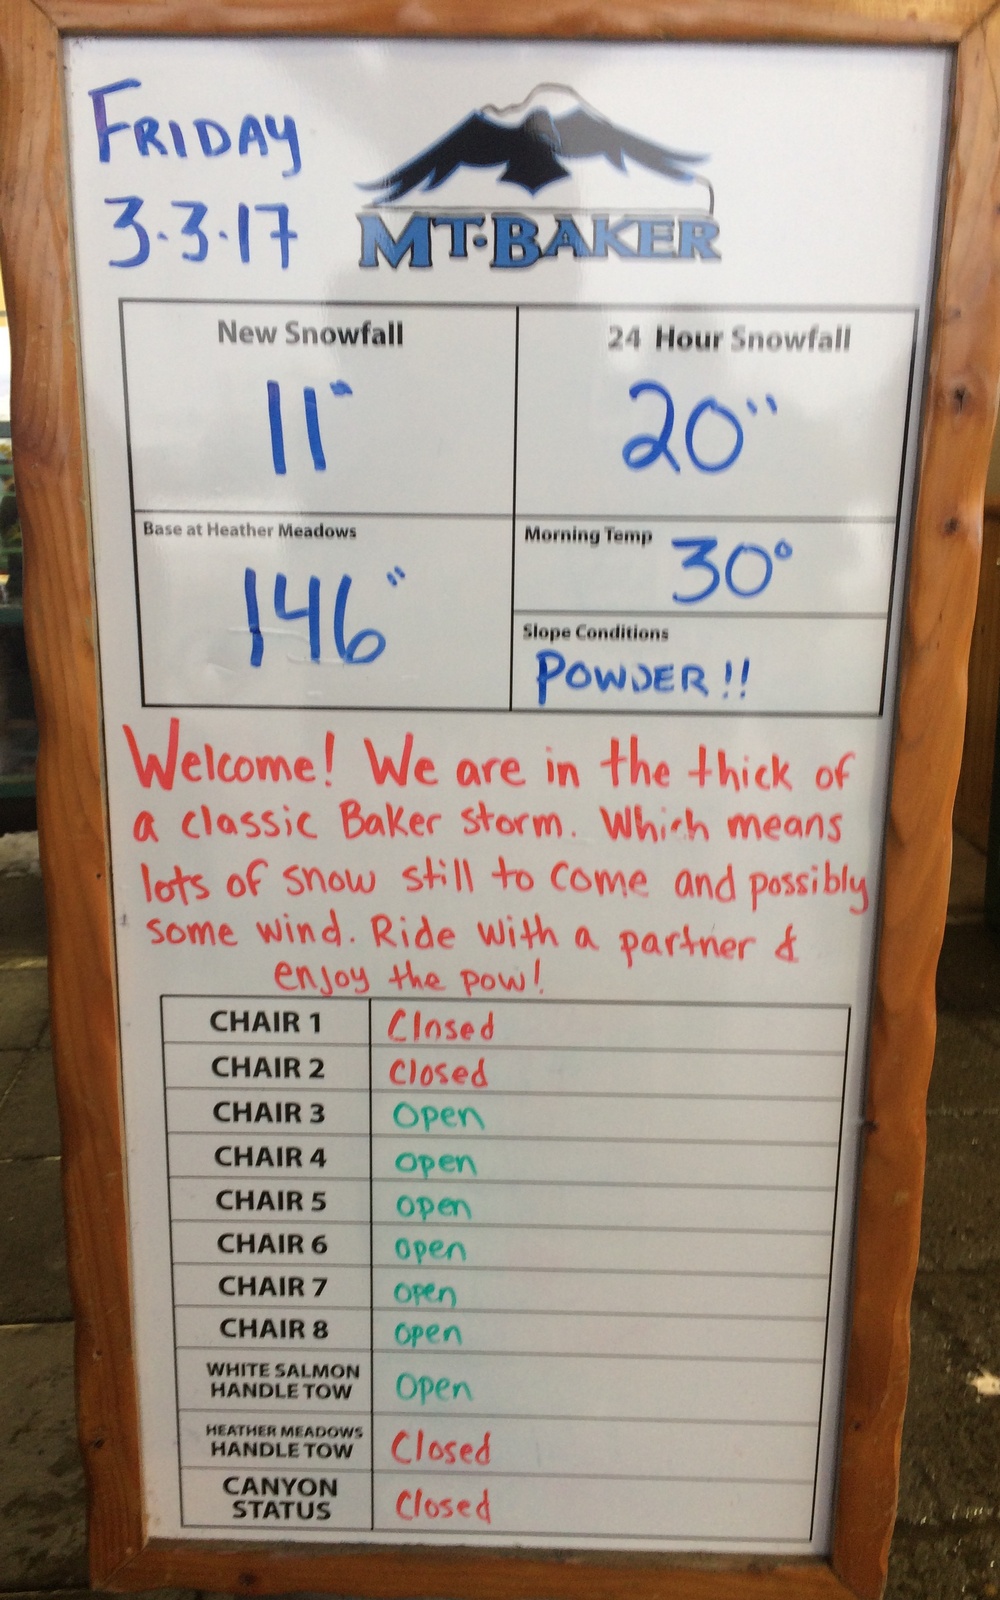 FRIDAY
3.3.17
MT. BAKER
New Snowfall
11"
24 Hour Snowfall
20"
Base at Heather Meadows
146"
Morning Temp
30°
Slope Conditions
POWDER!!
Welcome! We are in the thick of
a classic Baker storm. Which means
lots of snow still to come and possibly
some wind. Ride with a partner &
enjoy the pow!
CHAIR 1 Closed
CHAIR 2 Closed
CHAIR 3 Open
CHAIR 4 Open
CHAIR 5 Open
CHAIR 6 Open
CHAIR 7 Open
CHAIR 8 Open
WHITE SALMON
HANDLE TOW Open
HEATHER MEADOWS
HANDLE TOW Closed
CANYON
STATUS Closed